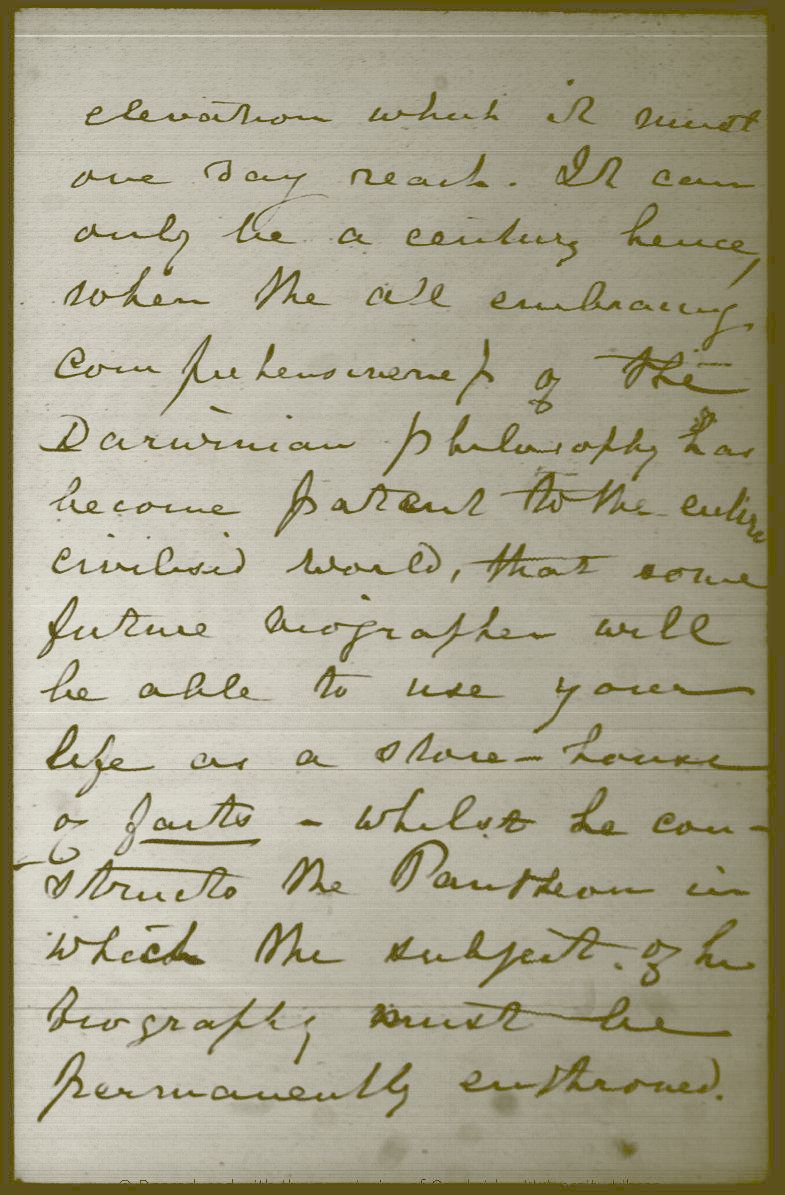 elevation which it must
one day reach. It can
only be a century hence,
when the all embracing
comprehensiveness of the
Darwinian philosophy has
become patent to the entire
civilised world, that some
future biographer will
be able to use your
life as a store-house
of facts - whilst he con-
structs the Pantheon in
which the subject of his
biography must be
permanently enthroned.